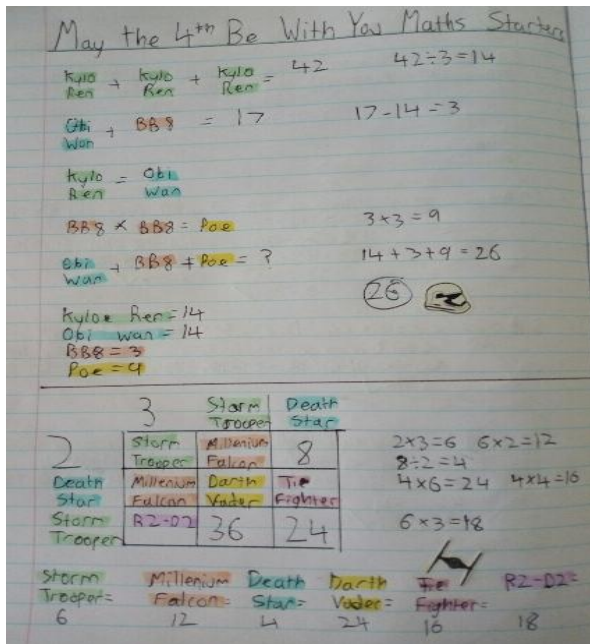 May the 4th Be With You Maths Starters
Kylo Ren + Kylo Ren + Kylo Ren = 42 42÷3=14
Obi Wan + BB8 = 17 17-14=3
Kylo Ren = Obi Wan
BB8 × BB8 = Poe 3×3=9
Obi Wan + BB8 + Poe = ? 14+3+9=26
26
Kyloe Ren=14
Obi wan=14
BB8=3
Poe=9
3 Storm Trooper Death Star
2 Storm Trooper Millenium Falcon 8 2×3=6 6×2=12
8÷2=4
Death Star Millenium Falcon Darth Vader Tie Fighter 4×6=24 4×4=16
Storm Trooper R2-D2 36 24 6×3=18
Storm Trooper= Millenium Falcon= Death Star= Darth Vader= Tie Fighter= R2-D2=
6 12 4 24 16 18